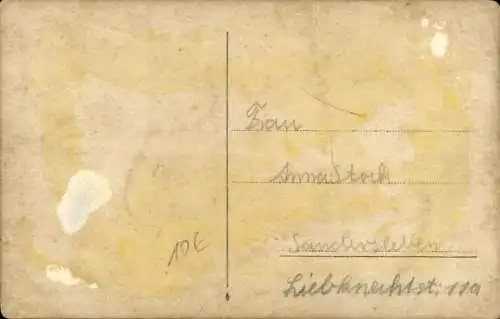 Frau
Anna Stock
Sandersleben
Liebknechtstr. 11a
10€